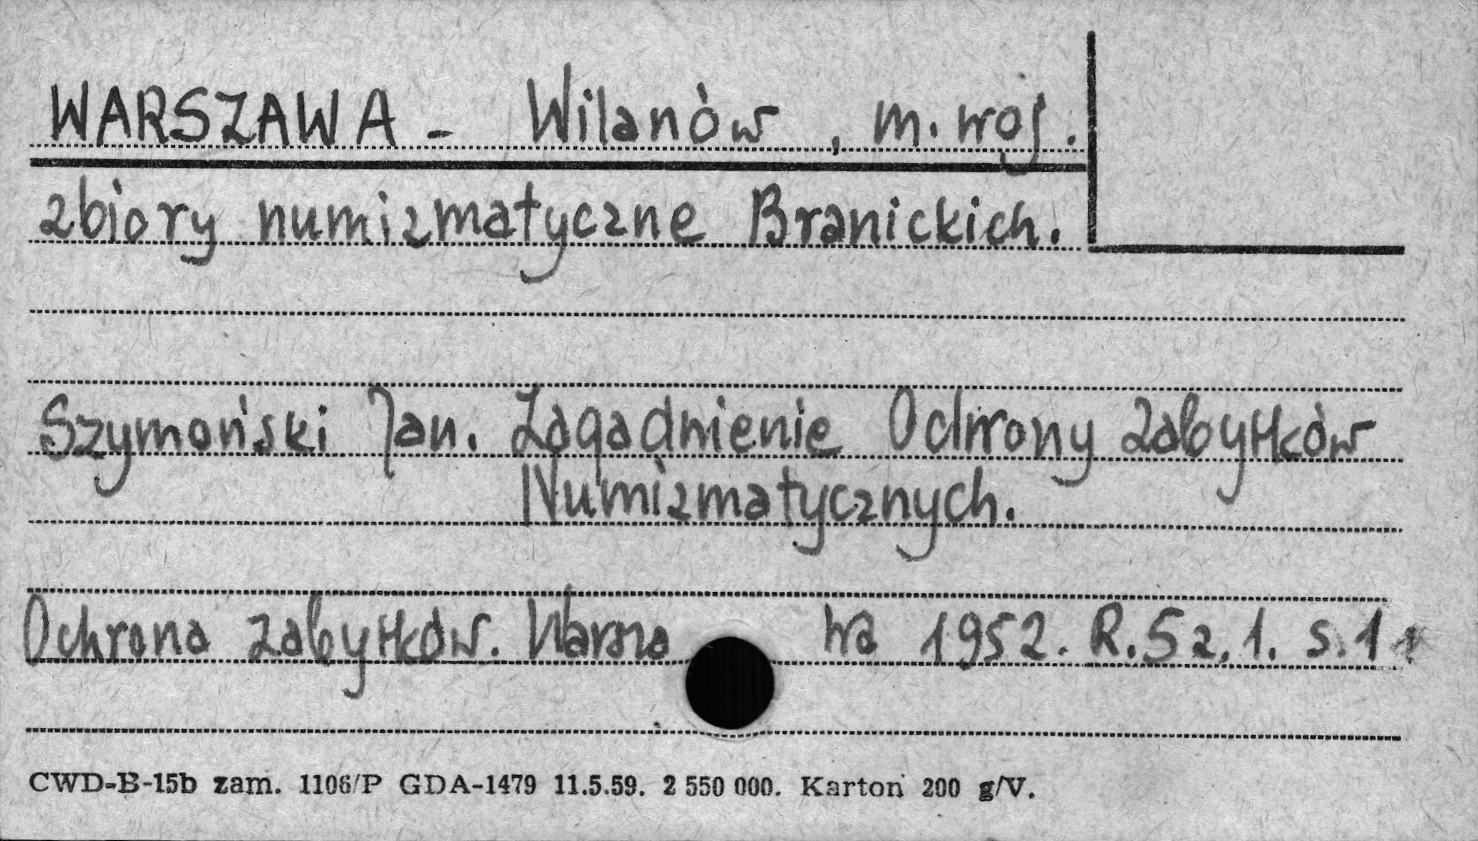 WARSZAWA - Wilanów, m. woj.
zbiory numizmatyczne Branickich.
Szymoński Jan. Zagadnienie Ochrony Zabytków
Numizmatycznych.
Ochrona Zabytków. Warsza wa 1952. R.5 z.1. s.1
CWD-B-15b zam. 1106/P GDA-1479 11.5.59. 2 550 000. Karton 200 g/V.